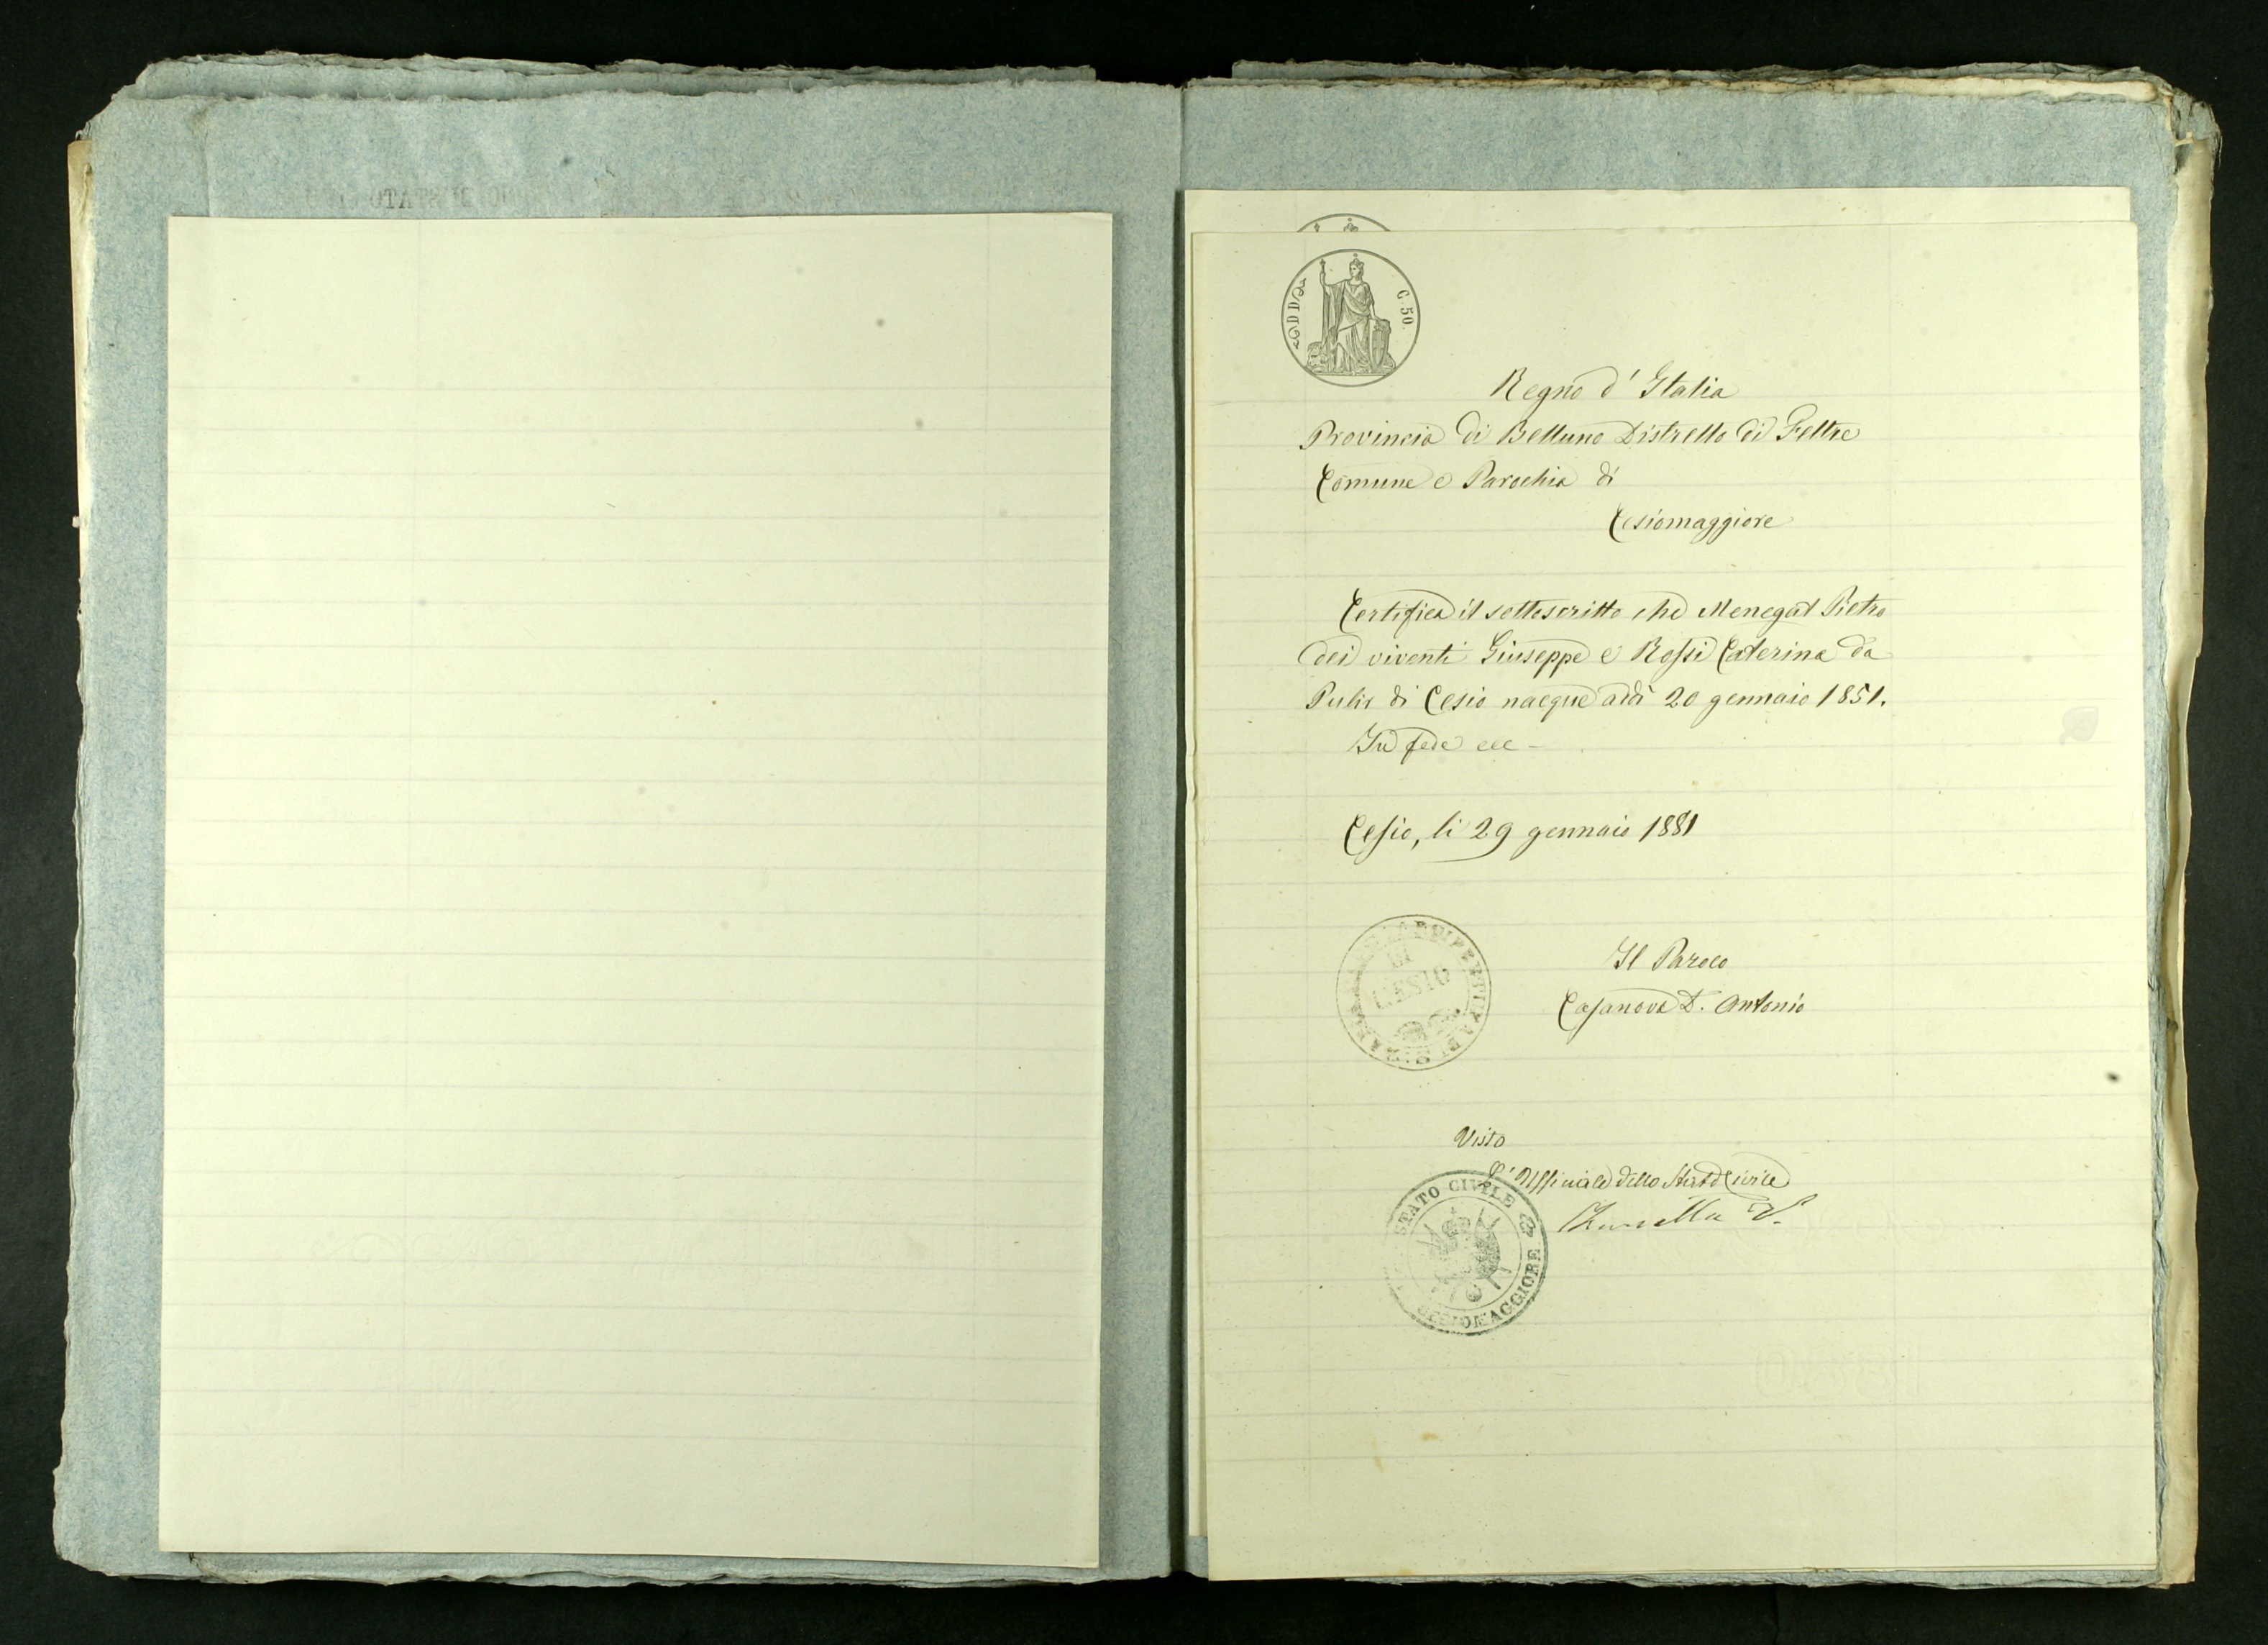 C. 50.
Regno d'Italia
Provincia di Belluno Distretto di Feltre
Comune e Parochia di
Cesiomaggiore
Certifica il sottoscritto che Menegat Pietro
dei viventi Giuseppe e Rossi Caterina da
Pulir di Cesio nacque addì 20 gennaio 1851.
In fede ecc -
Cesio, li 29 gennaio 1881
DI
CESIO
Il Paroco
Casanova D. Antonio
Visto
L'Ufficiale dello Stato Civile
STATO CIVILE
CESIOMAGGIORE